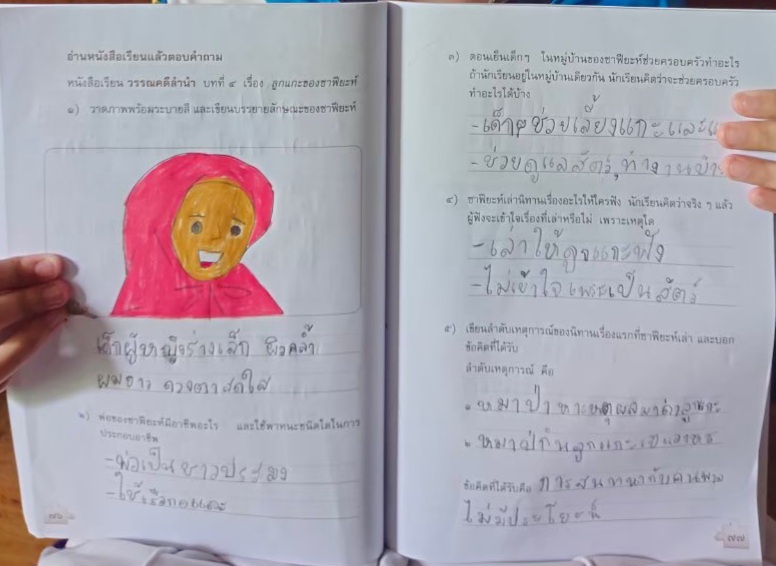 อ่านหนังสือเรียนแล้วตอบคำถาม
หนังสือเรียน วรรณคดีลำนำ บทที่ ๔ เรื่อง ลูกแกะของซาฟียะห์
๑) วาดภาพพร้อมระบายสี และเขียนบรรยายลักษณะของซาฟียะห์
เด็กผู้หญิงร่างเล็ก ผิวคล้ำ
ผมยาว ดวงตาสดใส
๒) พ่อของซาฟียะห์มีอาชีพอะไร และใช้พาหนะชนิดใดในการ
ประกอบอาชีพ
-พ่อเป็นชาวประมง
-ใช้เรือกอและ
๗๖
๓) ตอนเย็นเด็กๆ ในหมู่บ้านของซาฟียะห์ช่วยครอบครัวทำอะไร
ถ้านักเรียนอยู่ในหมู่บ้านเดียวกัน นักเรียนคิดว่าจะช่วยครอบครัว
ทำอะไรได้บ้าง
-เด็กๆช่วยเลี้ยงแกะและ
-ช่วยดูแลสัตว์,ทำงานบ้าน
๔) ซาฟียะห์เล่านิทานเรื่องอะไรให้ใครฟัง นักเรียนคิดว่าจริง ๆ แล้ว
ผู้ฟังจะเข้าใจเรื่องที่เล่าหรือไม่ เพราะเหตุใด
-เล่าให้ลูกแกะฟัง
-ไม่เข้าใจเพราะเป็นสัตว์
๕) เขียนลำดับเหตุการณ์ของนิทานเรื่องแรกที่ซาฟียะห์เล่า และบอก
ข้อคิดที่ได้รับ
ลำดับเหตุการณ์ คือ
หมาป่าหาเหตุผลมาด่าลูกแกะ
หมาป่ากินลูกแกะเป็นอาหาร
ข้อคิดที่ได้รับคือ การสนทนากับคนพาล
ไม่มีประโยชน์
๗๗